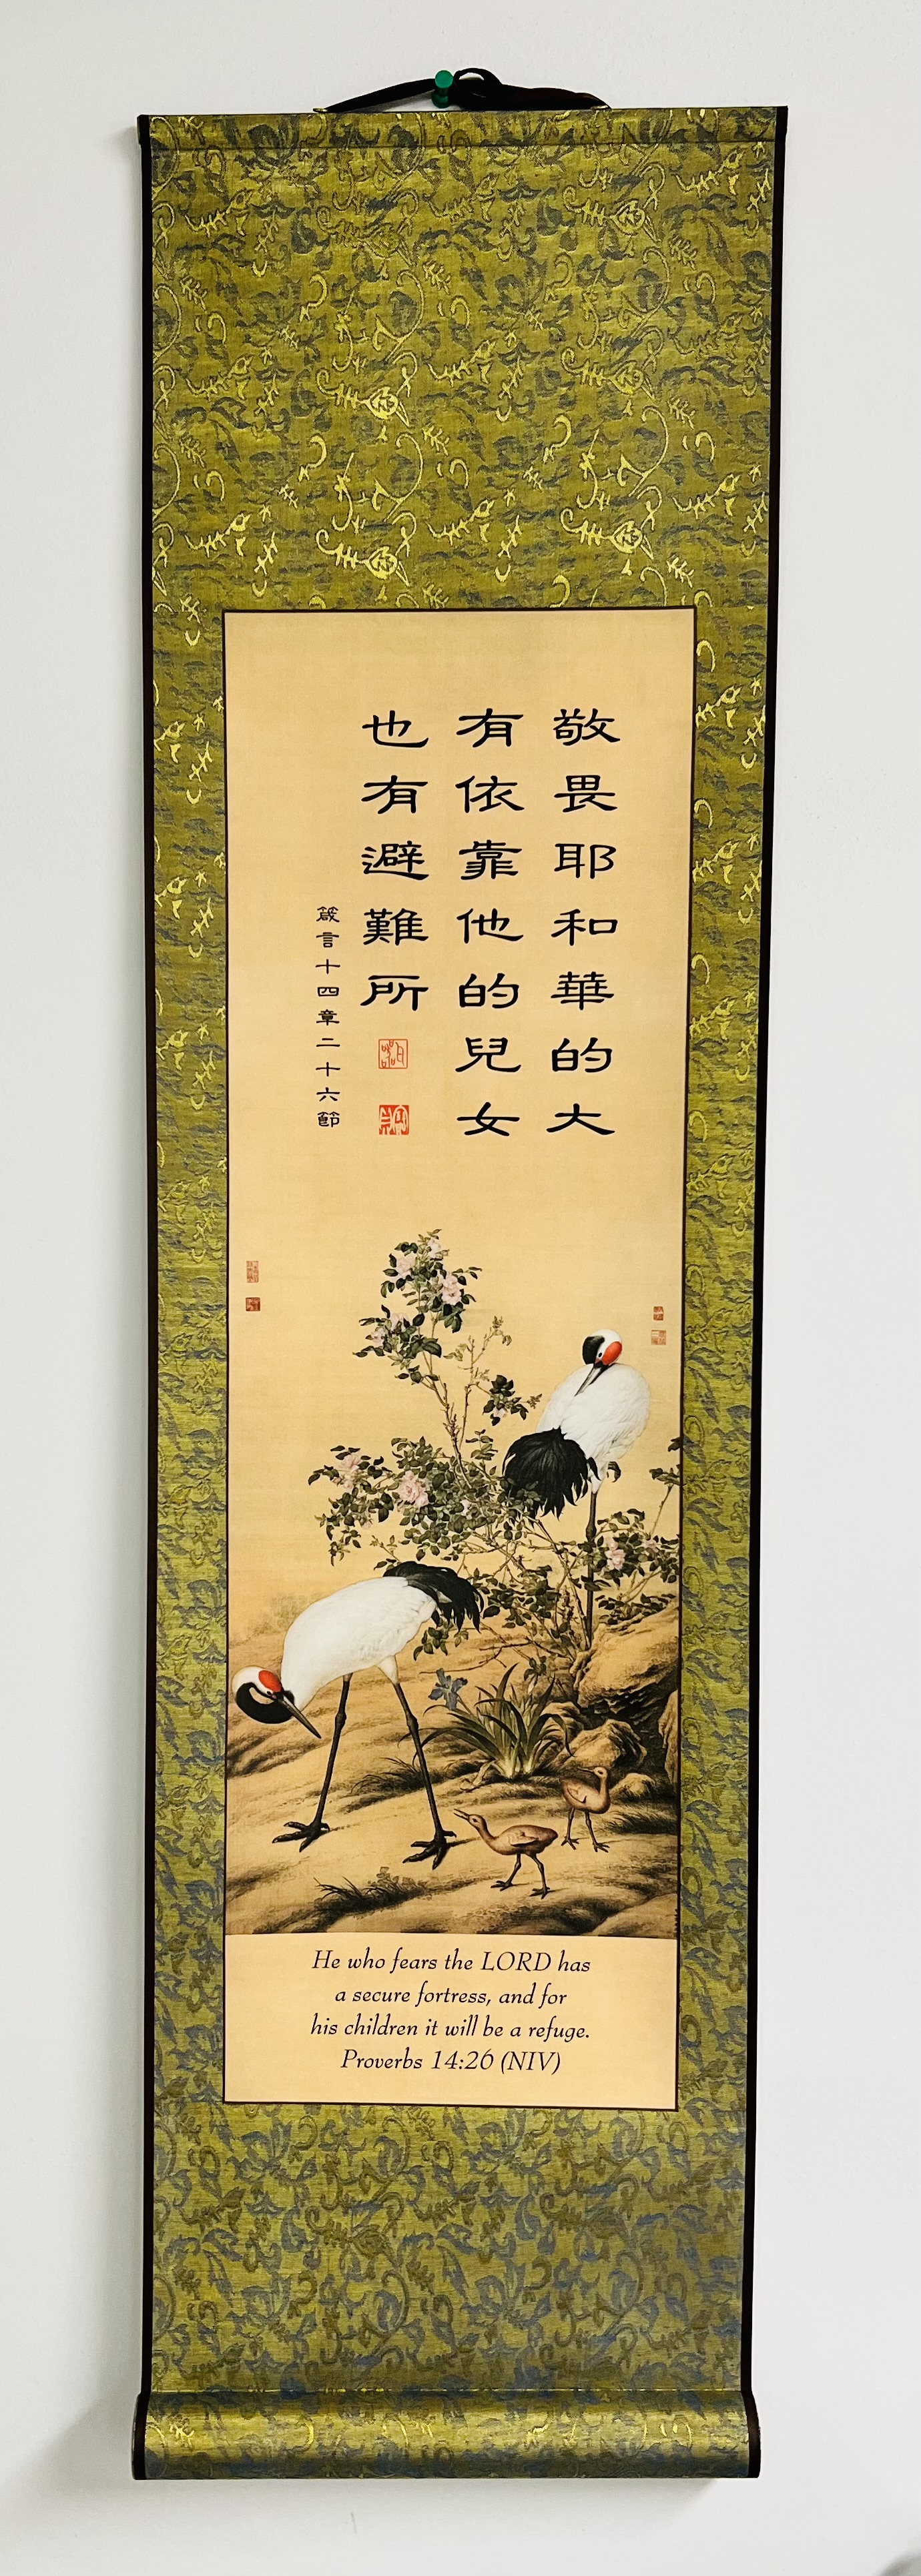 敬畏耶和華的大
有依靠他的兒女
也有避難所
箴言十四章二十六節
He who fears the LORD has
a secure fortress, and for
his children it will be a refuge.
Proverbs 14:26 (NIV)